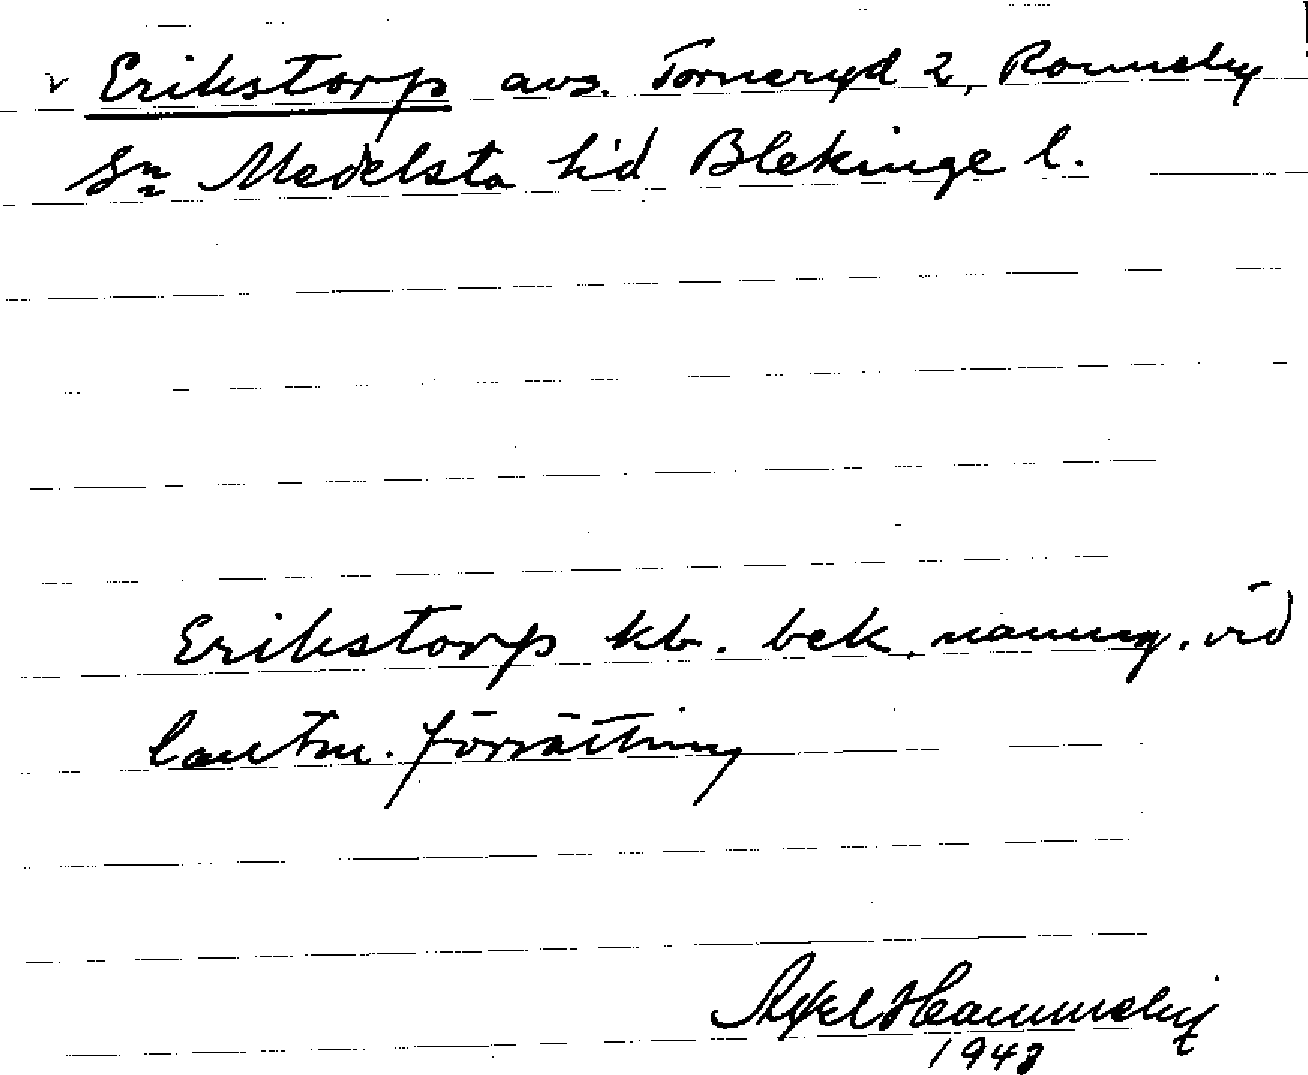 v Erikstorp avs. Torneryd 2, Ronneby
Sn Medelsta hd Blekinge l.
Erikstorp kb. bek. namng. vid
lantm. förrättning
Axel Hammeby
1943